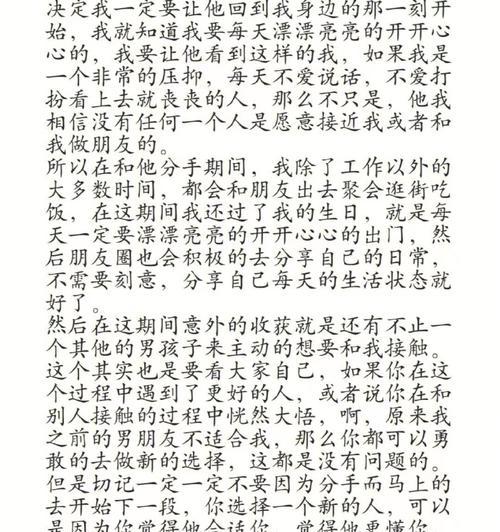 决定我一定要让他回到我身边的那一刻开
始，我就知道我要每天漂漂亮亮的开开心
心的，我要让他看到这样的我，如果我是
一个非常的压抑，每天不爱说话，不爱打
扮看上去就丧丧的人，那么不只是，他我
相信没有任何一个人是愿意接近我或者和
我做朋友的。
所以在和他分手期间，我除了工作以外的
大多数时间，都会和朋友出去聚会逛街吃
饭，在这期间我还过了我的生日，就是每
天一定要漂漂亮亮的开开心心的出门，然
后朋友圈也会积极的去分享自己的日常，
不需要刻意，分享自己每天的生活状态就
好了。
然后在这期间意外的收获就是还有不止一
个其他的男孩子来主动的想要和我接触。
这个其实也是要看大家自己，如果你在这
个过程中遇到了更好的人，或者说你在和
别人接触的过程中恍然大悟，啊，原来我
之前的男朋友不适合我，那么你都可以勇
敢的去做新的选择，这都是没有问题的。
但是切记一定一定不要因为分手而马上的
去开始下一段，你选择一个新的人，可以
是因为你觉得他合适你，觉得他更懂你，